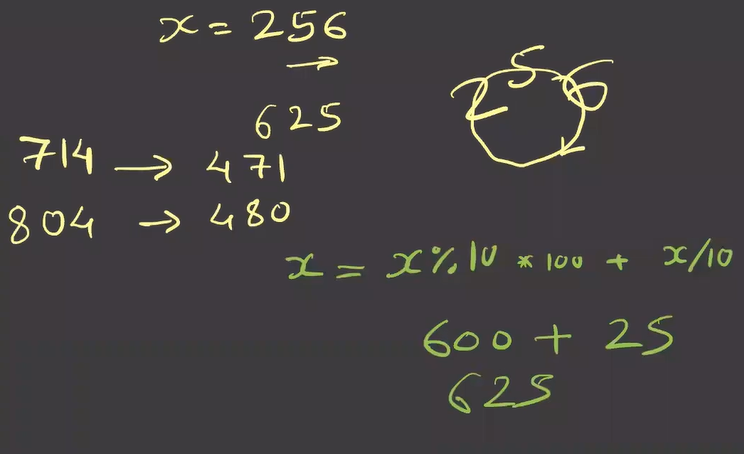 x = 256
→
2 5 6
625
714 → 471
804 → 480
x = x%10 * 100 + x/10
600 + 25
625